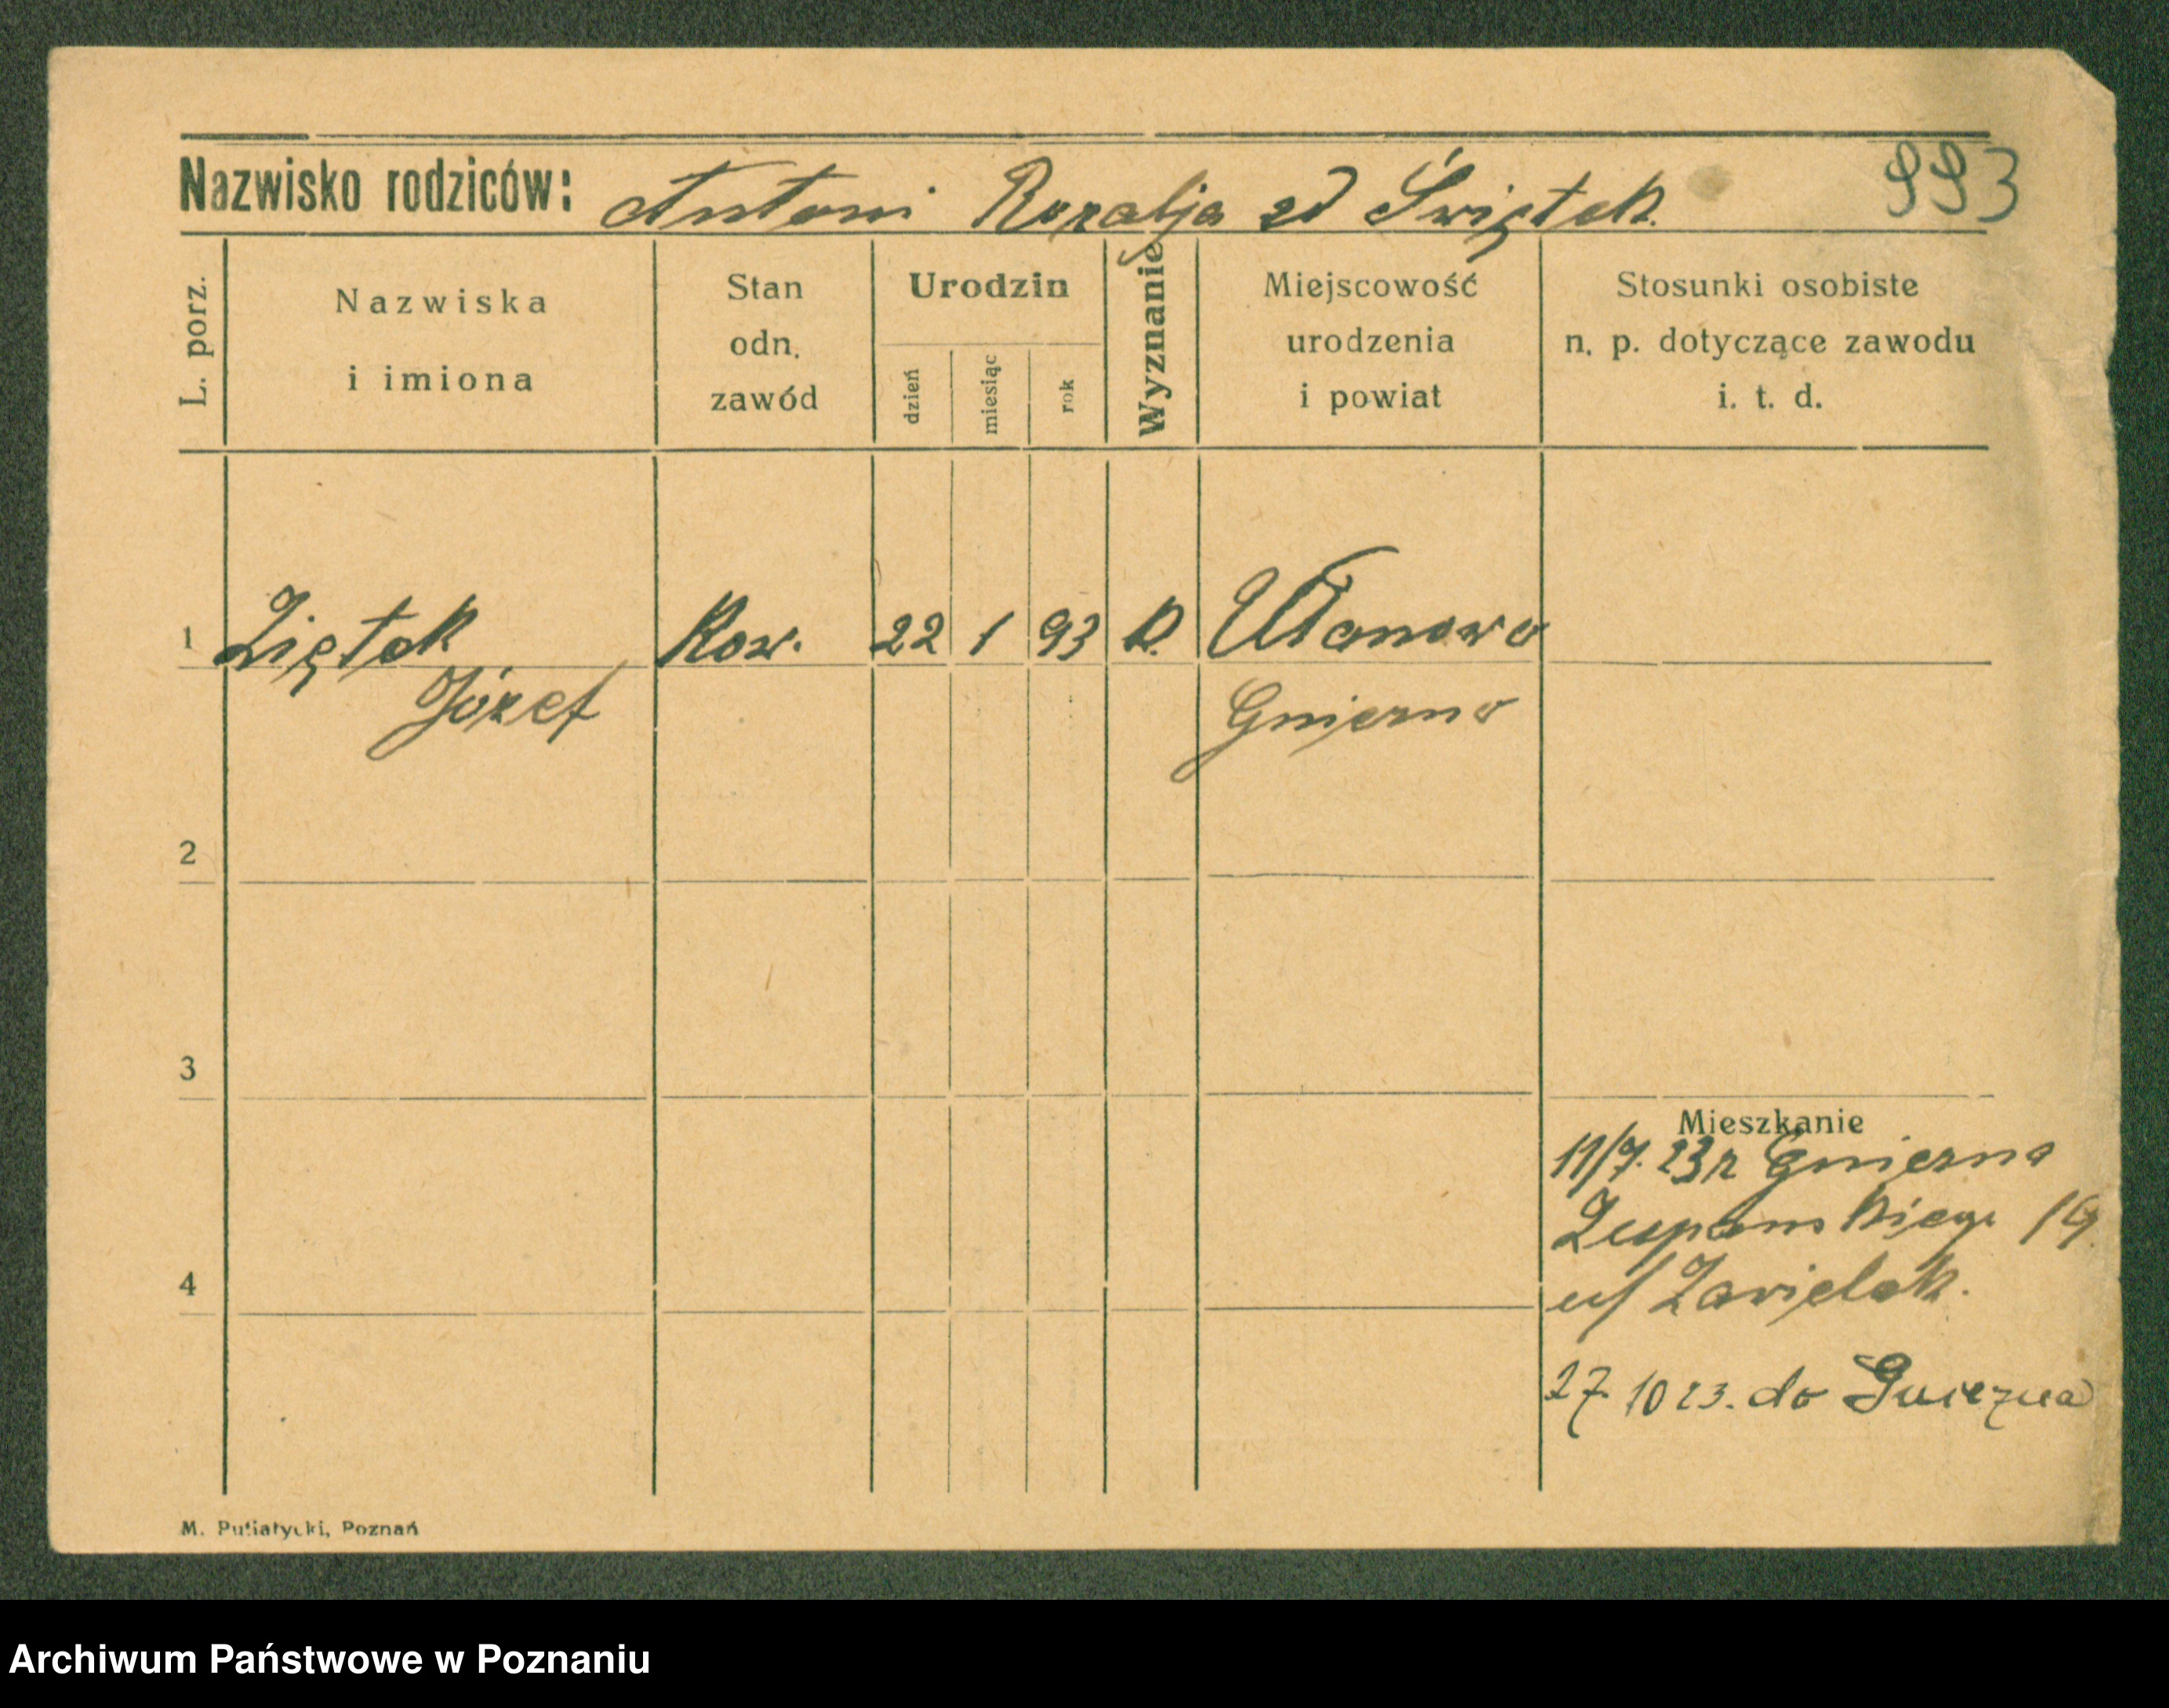 Nazwisko rodziców: Antoni Rozalja zd Świątek. 993
L. porz.
Nazwiska
i imiona
Stan
odn.
zawód
Urodzin
dzień
miesiąc
rok
Wyznanie
Miejscowość
urodzenia
i powiat
Stosunki osobiste
n. p. dotyczące zawodu
i. t. d.
1 Ziętek Kow. 22 1 93 k. Ułanowo
Józef Gniezno
2
3
Mieszkanie
11/7. 23 z Gniezna
Żupańskiego 19
4
27. 10 23. do Gniezna
M. Putiatycki, Poznań
Archiwum Państwowe w Poznaniu